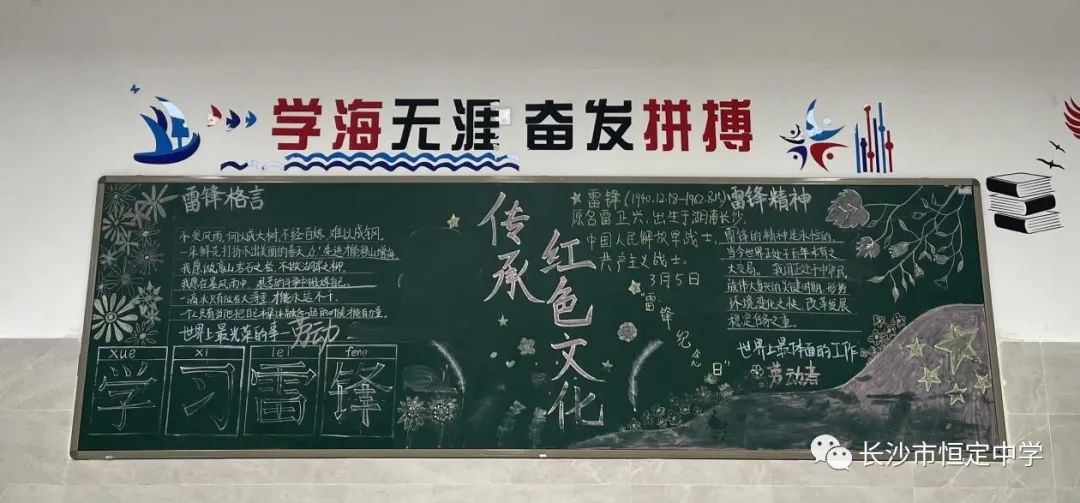 学海无涯 奋发拼搏
雷锋格言
不受风雨,何以成大树,不经百炼,难以成钢。
一朵鲜花打扮不出美丽的春天,人
我愿做高山岩石之松,不做湖岸之柳。
我愿在暴风雨中
一滴水只有放在大海里,才能永远不干。
世界上最光荣的事
劳动
xue xi lei feng
学习雷锋
传承
红色文化
雷锋(1940.12.18-1962.8.15)
原名雷正兴,出生于湖南长沙
中国人民解放军战士,
共产主义战士。
3月5日
"雷锋纪念日"
雷锋精神
雷锋的精神是永恒的,
当今世界正处于百年未有之
大变局。我国正处于中华民
族伟大复兴的关键时期,形势
环境变化之快、改革发展
稳定任务之重。
世界上最体面的工作
劳动者
长沙市恒定中学